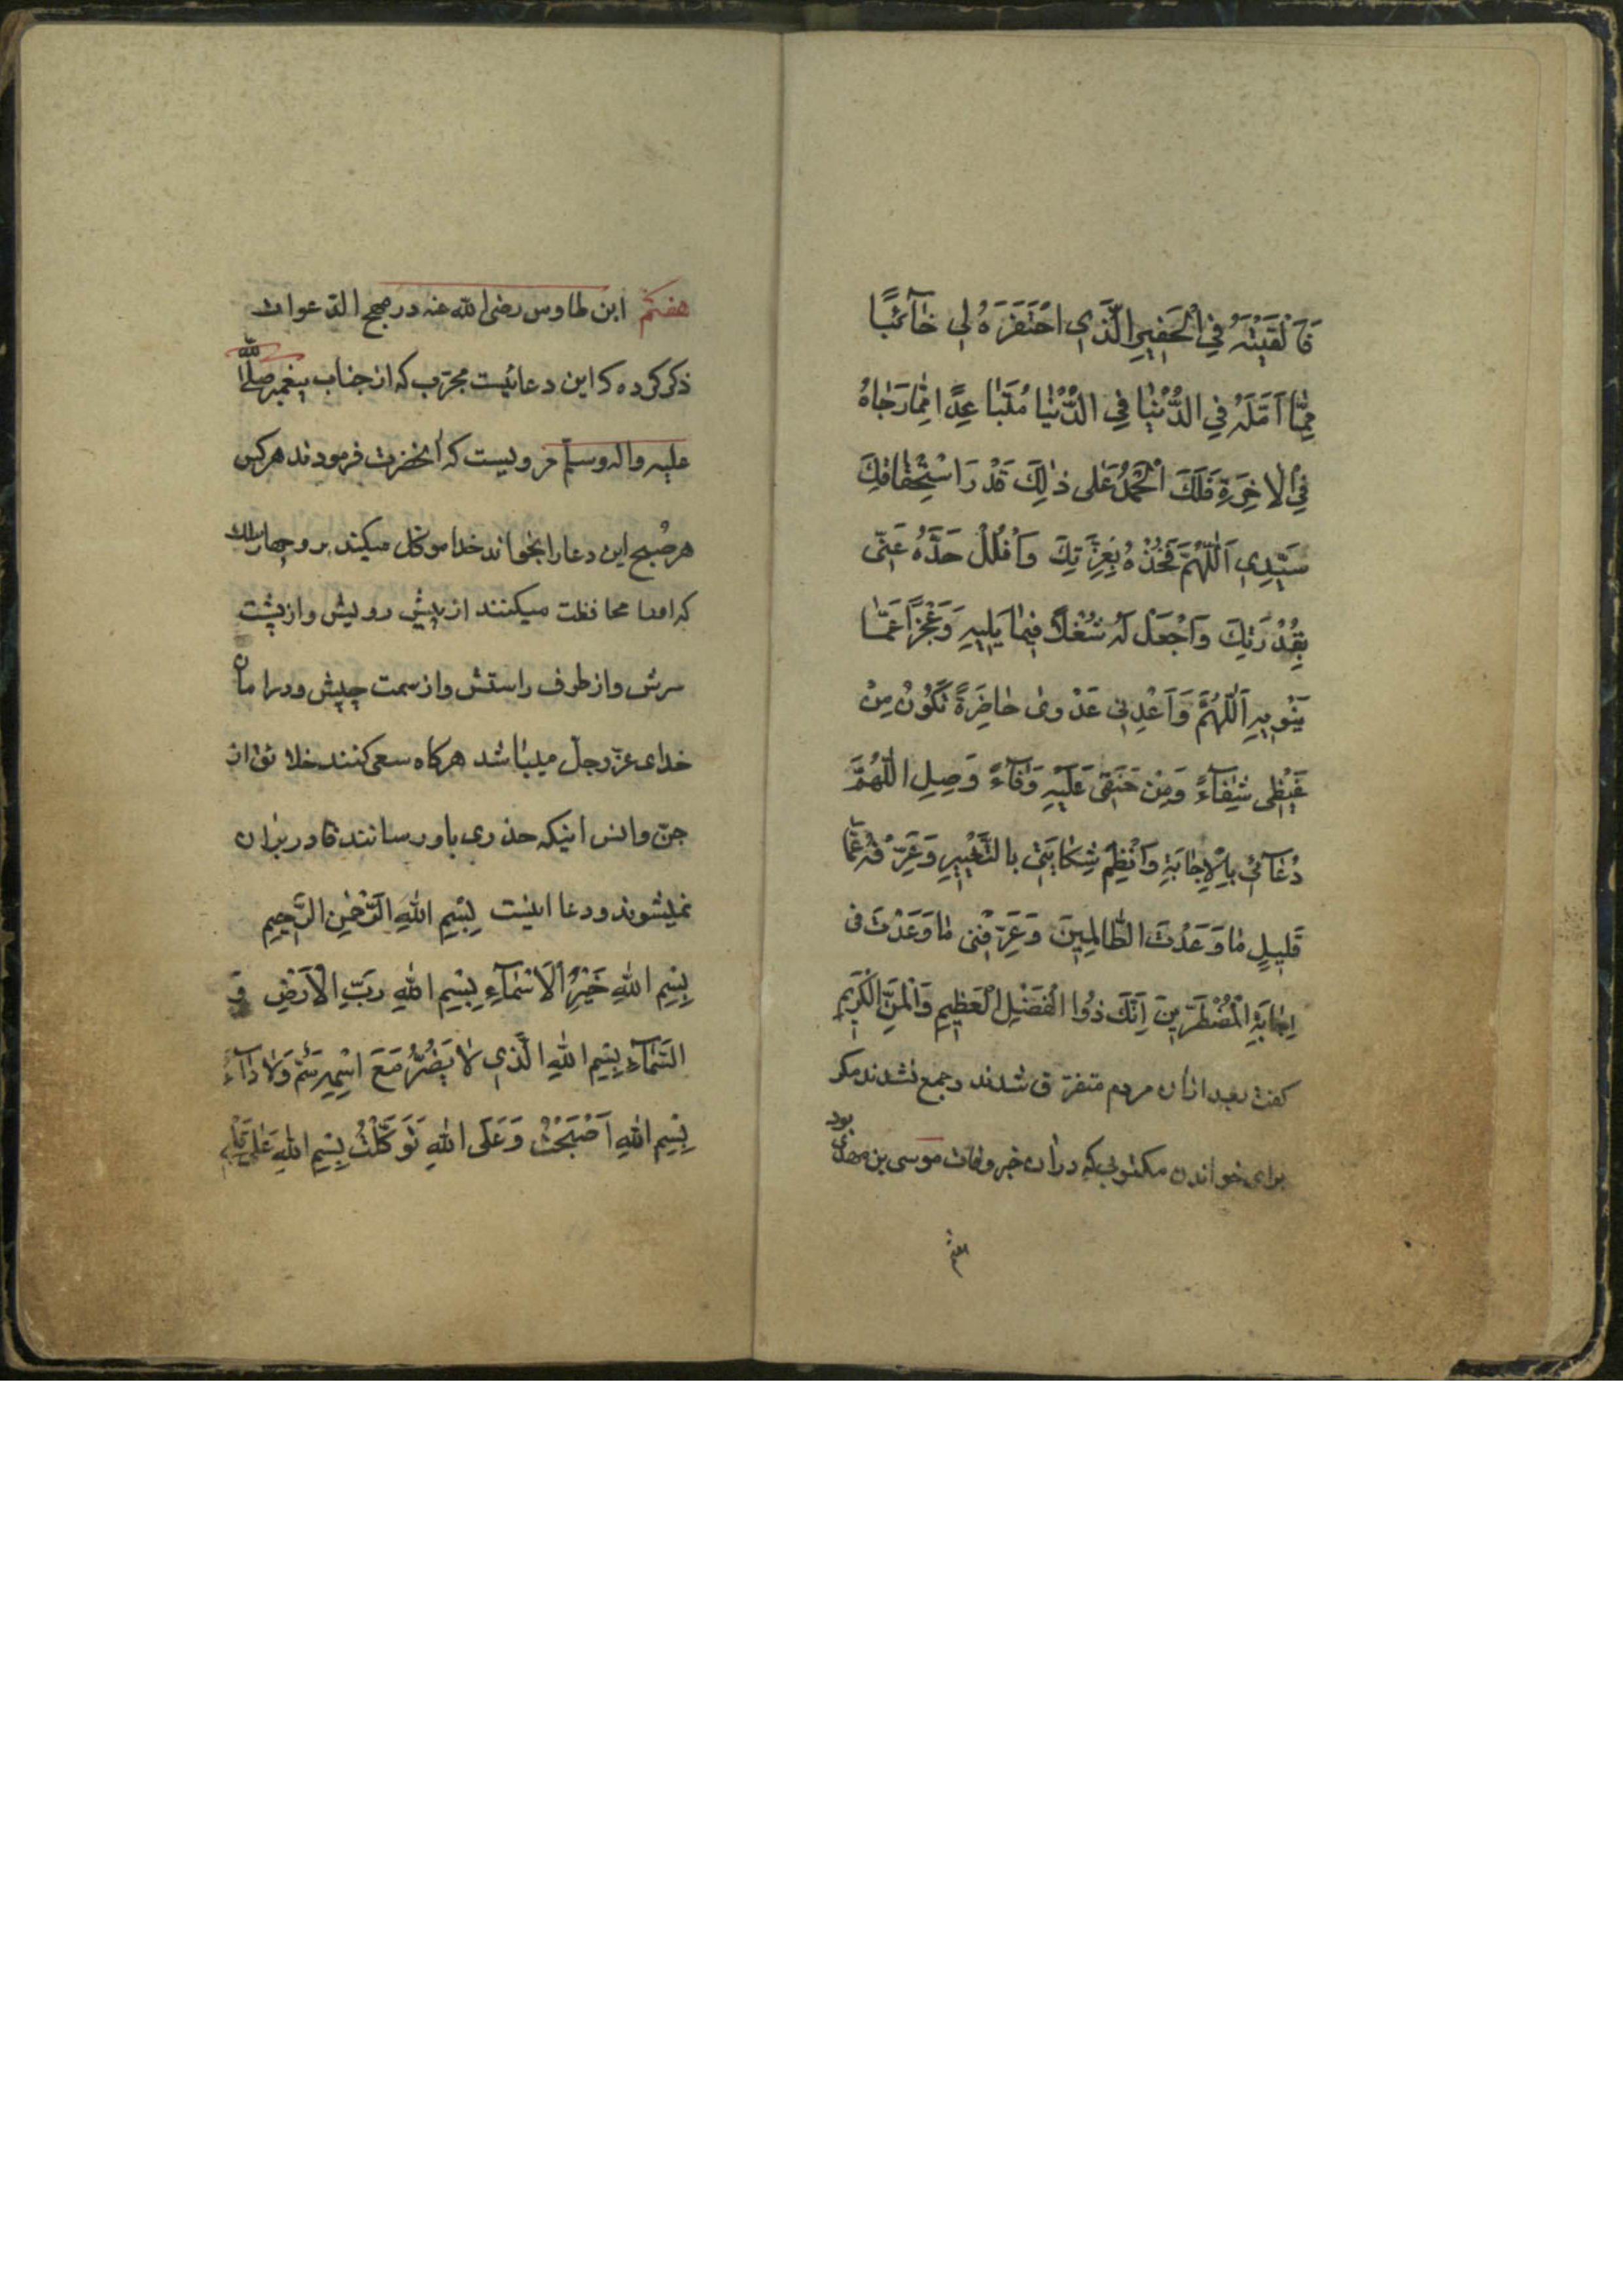 فَاَلْقَيْتَهُ فِي الْحَفِيرِ الَّذِي احْتَفَرَهُ لِي خٰآئِبًا
مِمّٰا اَمَّلَهُ فِي الدُّنْيٰا فِي الدُّنْيٰا مُتَبٰاعِدًا مِمّٰا رَجٰاهُ
فِي الْاٰخِرَةِ فَلَكَ الْحَمْدُ عَلٰى ذٰلِكَ قَدْرَ اسْتِحْقٰاقِكَ
سَيِّدِي اَللّٰهُمَّ فَخُذْهُ بِعِزَّتِكَ وَاَفْلُلْ حَدَّهُ عَنّى
بِقُدْرَتِكَ وَاَجْعَلْ لَهُ شُغْلًا فِيمٰا يَلِيهِ وَعَجْزًا عَمّٰا
يَنْوِيهِ اَللّٰهُمَّ وَاَعْدِنِي عَدْوىٰ حٰاضِرَةً تَكُونُ مِنْ
غَيْظِى شِفٰآءً وَمِنْ حَنَقِى عَلَيْهِ وَفٰآءً وَصِلِ اللّٰهُمَّ
دُعٰآئِى بِالْاِجٰابَةِ وَاَنْظِمْ شِكٰايَتِى بِالتَّغْيِيرِ وَعَرِّفْهُ عَمّٰا
قَلِيلٍ مٰا وَعَدْتَ الظّٰالِمِينَ وَعَرِّفْنِى مٰا وَعَدْتَ فى
اِجٰابَةِ الْمُضْطَرِّينَ اِنَّكَ ذُوا الْفَضْلِ الْعَظِيمِ وَالْمَنِّ الْكَرِيمِ
كفت بعد ازان مردم متفرق شدند و جمع نشدند مكر
براى خواندن مكتوبى كه دران خبر وفات موسى بن مهدى بود
هفتم ابن طاوس رضى الله عنه در مهج الدعوات
ذكر كرده كه اين دعائيست مجرّب كه از جناب پيغمبر صلّى الله
عليه واله وسلّم مرويست كه انحضرت فرمودند هركس
هر صُبح اين دعا را بخواند خدا موكل ميكند بر او چهار ملك
كه اورا محافظت ميكنند از پيش رويش واز پشت
سرش واز طرف راستش واز سمت چپش ودر امان
خداى عزّوجلّ ميباشد هركاه سعى كنند خلائق از
جنّ وانس اينكه ضررى باو رسانند قادر بران
نميشوند و دعا اينست بِسْمِ اللهِ الرَّحْمٰنِ الرَّحِيمِ
بِسْمِ اللهِ خَيْرِ الْاَسْمٰآءِ بِسْمِ اللهِ رَبِّ الْاَرْضِ وَ
السَّمٰآءِ بِسْمِ اللهِ الَّذِى لٰا يَضُرُّ مَعَ اسْمِهِ سَمٌّ وَلٰا دٰآءٌ
بِسْمِ اللهِ اَصْبَحْتُ وَعَلَى اللهِ تَوَكَّلْتُ بِسْمِ اللهِ عَلٰى قَلْبِى